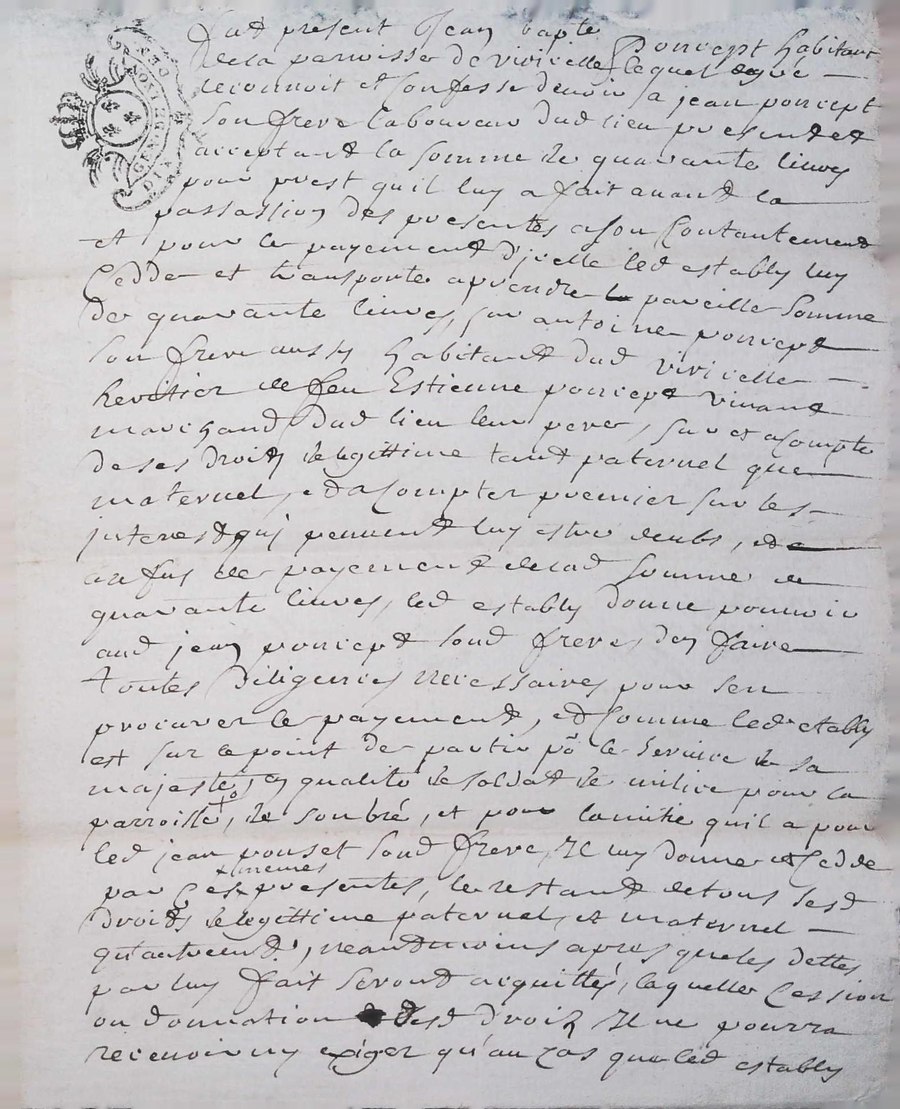 GEN DE MONTPELLIER
f.ut present Jean bapte poncept habitant
de la parroisse de vivicelle, lequel de gré
reconnoit et confesse devoir a jean poncept
son frere laboureur dud lieu present et
acceptant la somme de quarante livres
pour prest quil luy a fait avant la
passassion des presentes a son contantement
et pour le payement d'icelle led estably luy
cedde et transporte a prendre pareille somme
de quarante livres, sur antoine poncept
son frere aussy habitant dud vivicelle
heritier de feu Estienne poncept vivant
marchand dud lieu leur pere, sur et a compte
de ses droitz de legittime tant paternel que
maternel, et a compter premier sur les
interest quj peuvent luy estre deubs, et
au fus de payement de lad somme de
quarante livres, led estably donne pouvoir
aud jean poncept sond frere, den faire
toutes diligences necessaires pour sen
procurer le payement, et somme led estably
est sur le point de partir po le service de sa
majesté, en qualité de soldat de milice pour la
parroisse, de sombré, et pour lamitie quil a pour
led jean pouset sond frere, Il luy donne et cedde
par ces mêmes presentes, le restant de tous sesd
droits de legittime paternel, et maternel
neandmoins apres que les dettes
par luy fait seront acquittés, laquelle cession
ou donnation desd droitz Il ne pourra
recevoir ny exiger qu'au cas que led estably